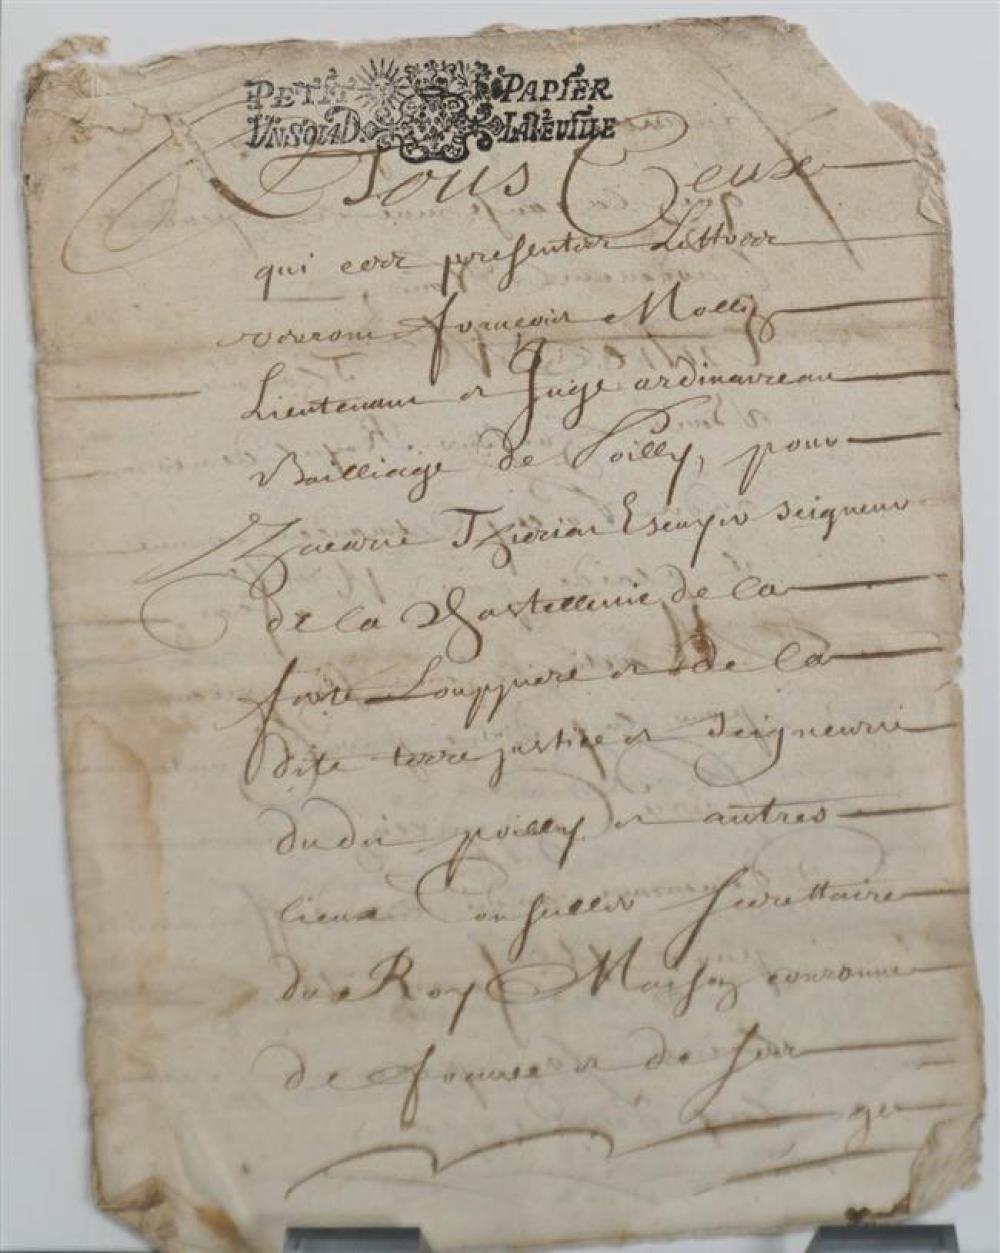 PETIT PAPIER
UN SOL D. LA FEUILLE
A Tous Ceux
qui ces presentes Lettres
verront francois
Lieutenant et Juge ordinaire au
Bailliage de Poilly, pour
Zacarie Escuyer Seigneur
de la Chastellenie de la
ferte Louppiere et de la
dite terre justice et Seigneurie
dudit poilly et autres
lieux Conseiller Secrettaire
du Roy Maison couronne
de france et de ses